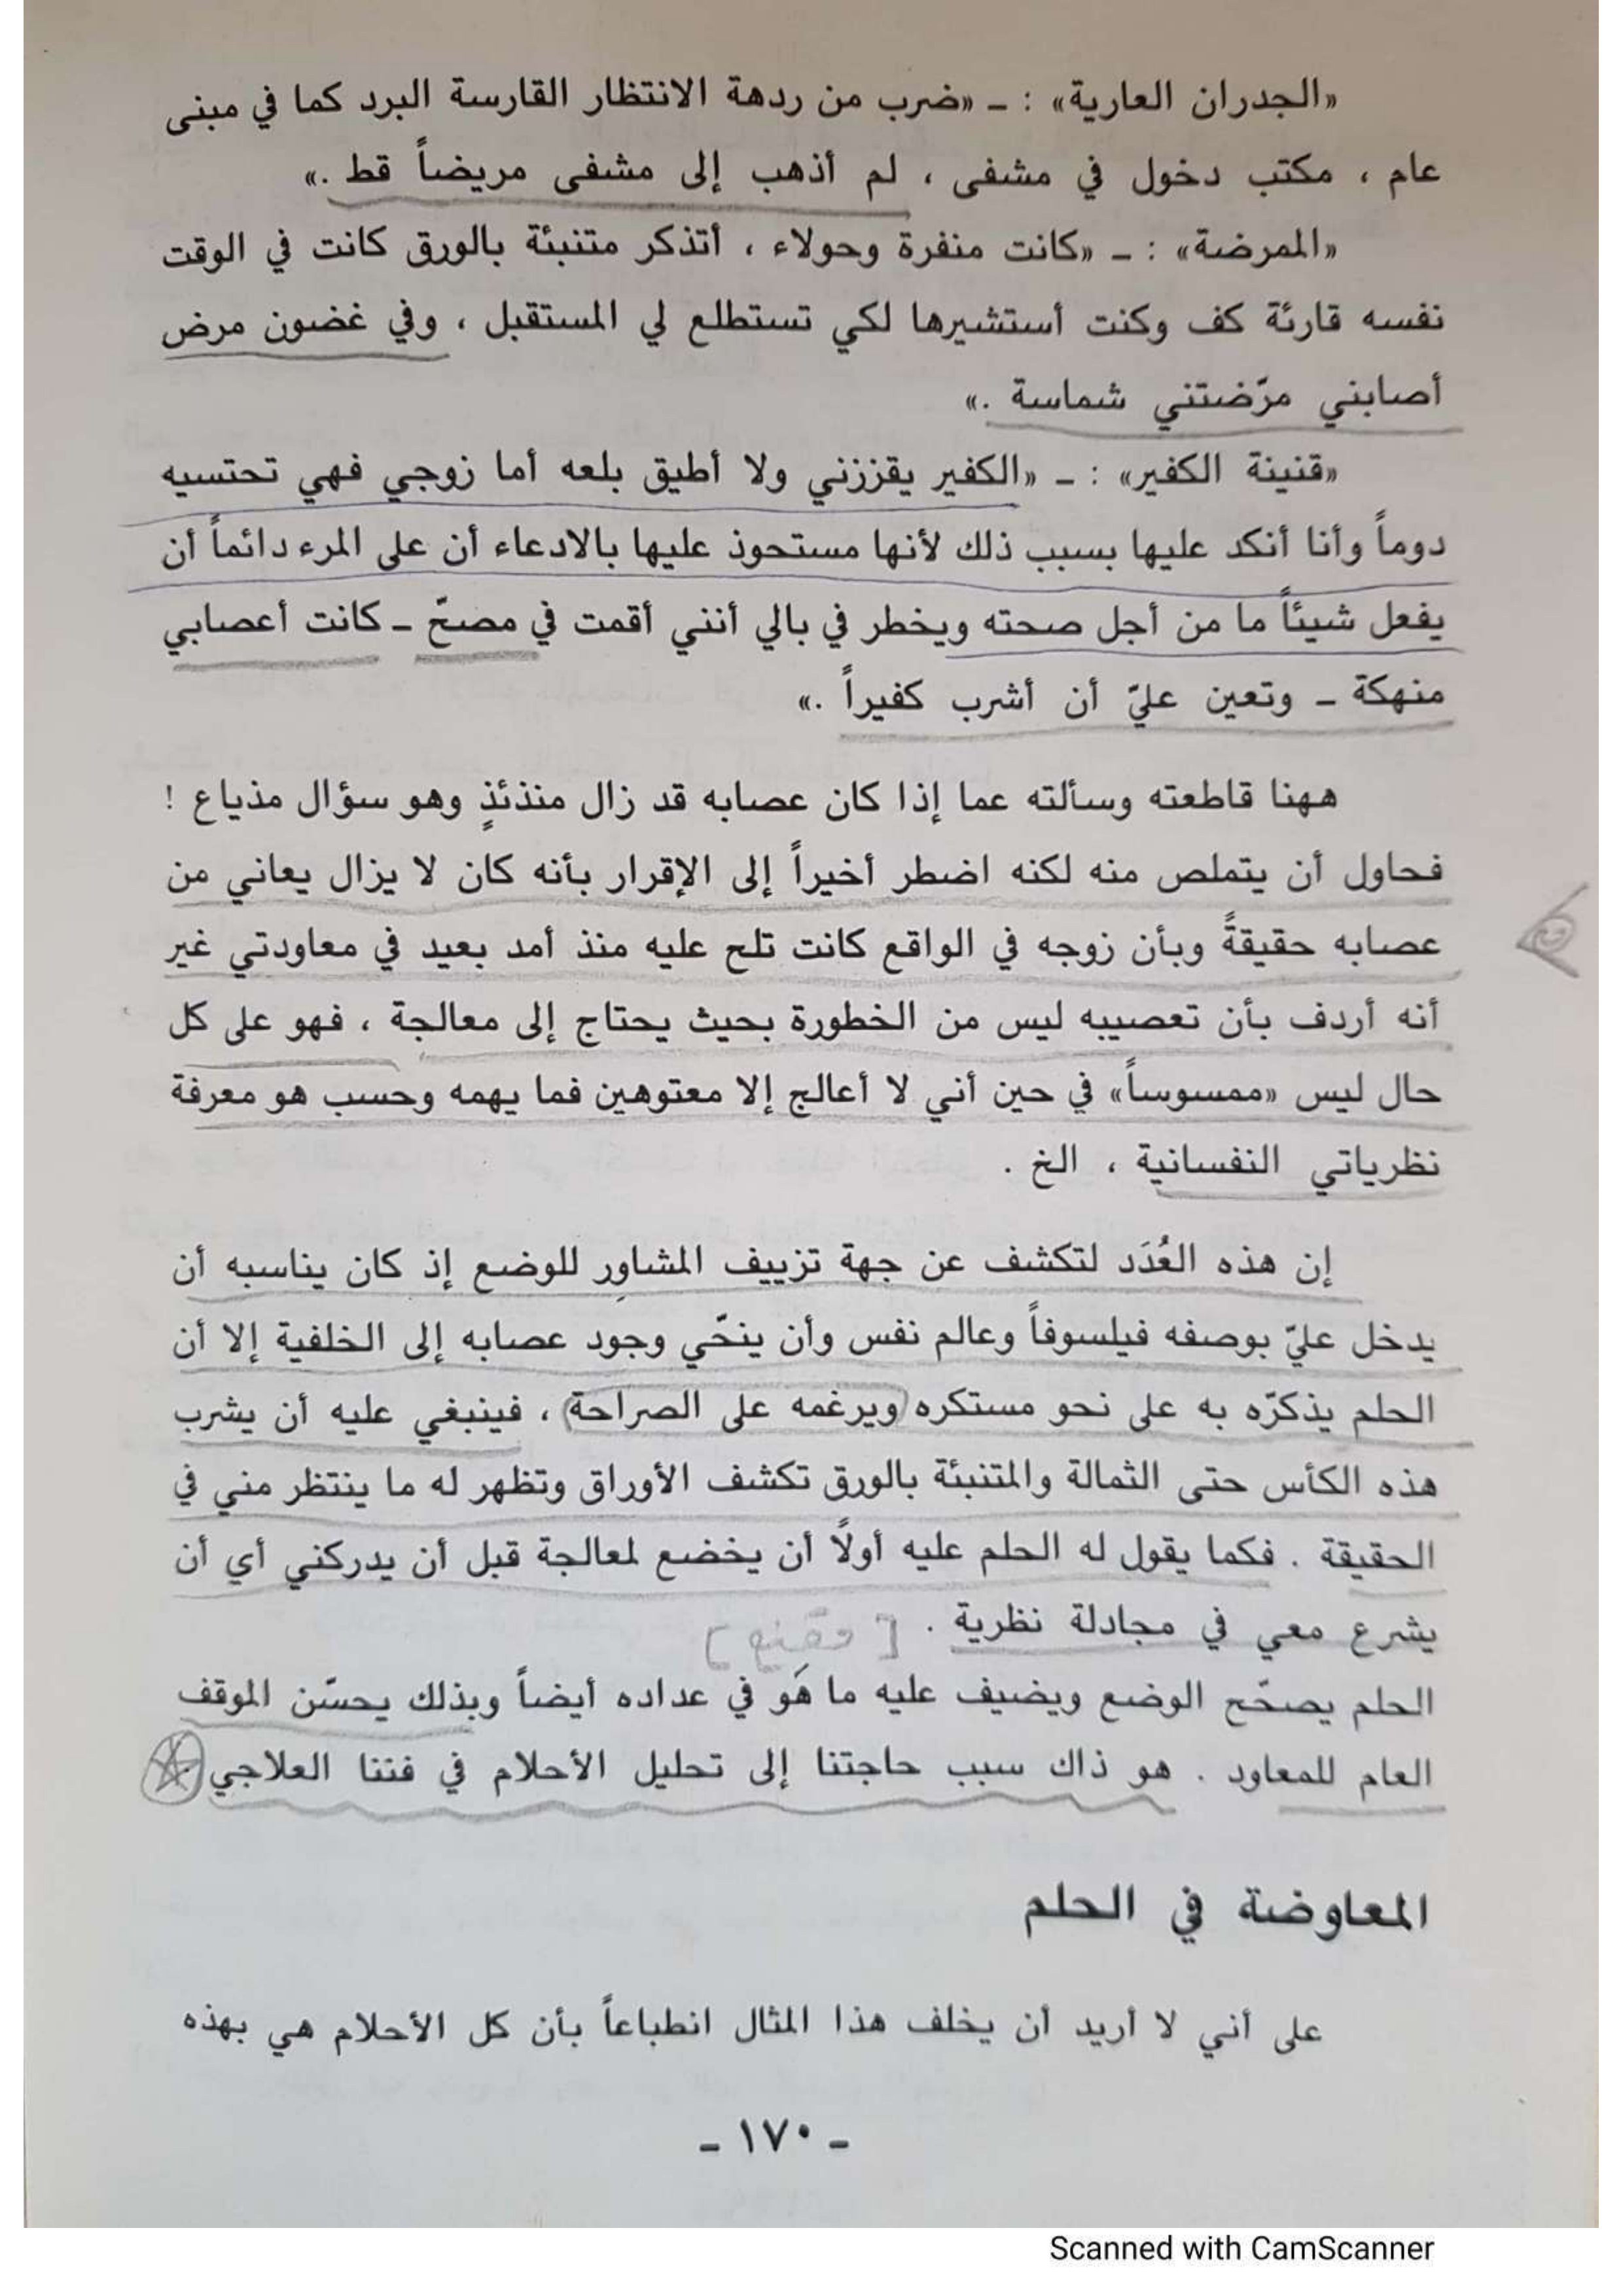 «الجدران العارية» : ـ «ضرب من ردهة الانتظار القارسة البرد كما في مبنى
عام ، مكتب دخول في مشفى ، لم أذهب إلى مشفى مريضاً قط .»
«الممرضة» : ـ «كانت منفرة وحولاء ، أتذكر متنبئة بالورق كانت في الوقت
نفسه قارئة كف وكنت أستشيرها لكي تستطلع لي المستقبل ، وفي غضون مرض
أصابني مرّضتني شماسة .»
«قنينة الكفير» : ـ «الكفير يقززني ولا أطيق بلعه أما زوجي فهي تحتسيه
دوماً وأنا أنكد عليها بسبب ذلك لأنها مستحوذ عليها بالادعاء أن على المرء دائماً أن
يفعل شيئاً ما من أجل صحته ويخطر في بالي أنني أقمت في مصحّ ـ كانت أعصابي
منهكة ـ وتعين عليّ أن أشرب كفيراً .»
ههنا قاطعته وسألته عما إذا كان عصابه قد زال منذئذٍ وهو سؤال مذياع !
فحاول أن يتملص منه لكنه اضطر أخيراً إلى الإقرار بأنه كان لا يزال يعاني من
عصابه حقيقةً وبأن زوجه في الواقع كانت تلح عليه منذ أمد بعيد في معاودتي غير
أنه أردف بأن تعصيبه ليس من الخطورة بحيث يحتاج إلى معالجة ، فهو على كل
حال ليس «ممسوساً» في حين أني لا أعالج إلا معتوهين فما يهمه وحسب هو معرفة
نظرياتي النفسانية ، الخ .
إن هذه العُدَد لتكشف عن جهة تزييف المشاوِر للوضع إذ كان يناسبه أن
يدخل عليّ بوصفه فيلسوفاً وعالم نفس وأن ينحّي وجود عصابه إلى الخلفية إلا أن
الحلم يذكّره به على نحو مستكره (ويرغمه على الصراحة) ، فينبغي عليه أن يشرب
هذه الكأس حتى الثمالة والمتنبئة بالورق تكشف الأوراق وتظهر له ما ينتظر مني في
الحقيقة . فكما يقول له الحلم عليه أولًا أن يخضع لمعالجة قبل أن يدركني أي أن
يشرع معي في مجادلة نظرية . [مقنع]
الحلم يصحّح الوضع ويضيف عليه ما هَو في عداده أيضاً وبذلك يحسّن الموقف
العام للمعاود . هو ذاك سبب حاجتنا إلى تحليل الأحلام في فننا العلاجي
المعاوضة في الحلم
على أني لا أريد أن يخلف هذا المثال انطباعاً بأن كل الأحلام هي بهذه
ـ ١٧٠ ـ
Scanned with CamScanner